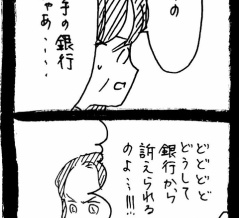 の
手の銀行
ゃあ・・・・
どどどど
どうして
銀行から
訴えられる
のよ・・!!!